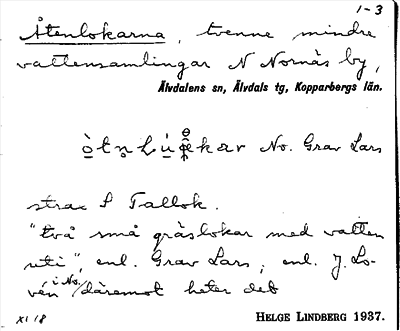 1-3
Åtenlokarna, tvenne mindre
vattensamlingar N Nornäs by,
Älvdalens sn, Älvdals tg, Kopparbergs län.
No. Grav Lars
strax S Tallok.
"två små gräslokar med vatten
uti", enl. Grav Lars; enl. J. Lo-
vén i No. däremot heter det
XI 18 HELGE LINDBERG 1937.